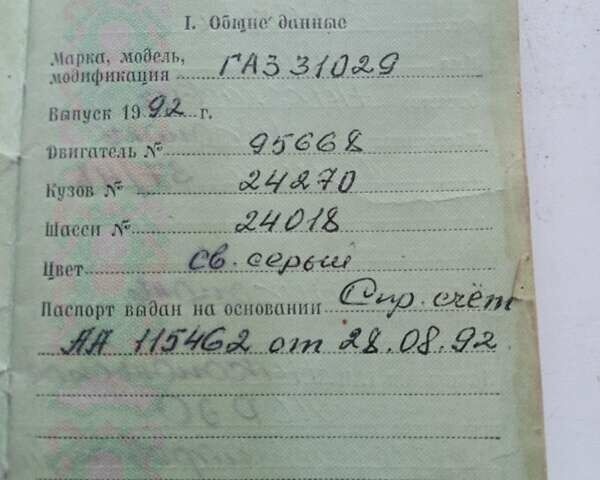 I. Общие данные
Марка, модель,
модификация ГАЗ 31029
Выпуск 1992 г.
Двигатель № 95668
Кузов № 24270
Шасси № 24018
Цвет св. серый
Паспорт выдан на основании Спр. счёт
АА 115462 от 28.08.92